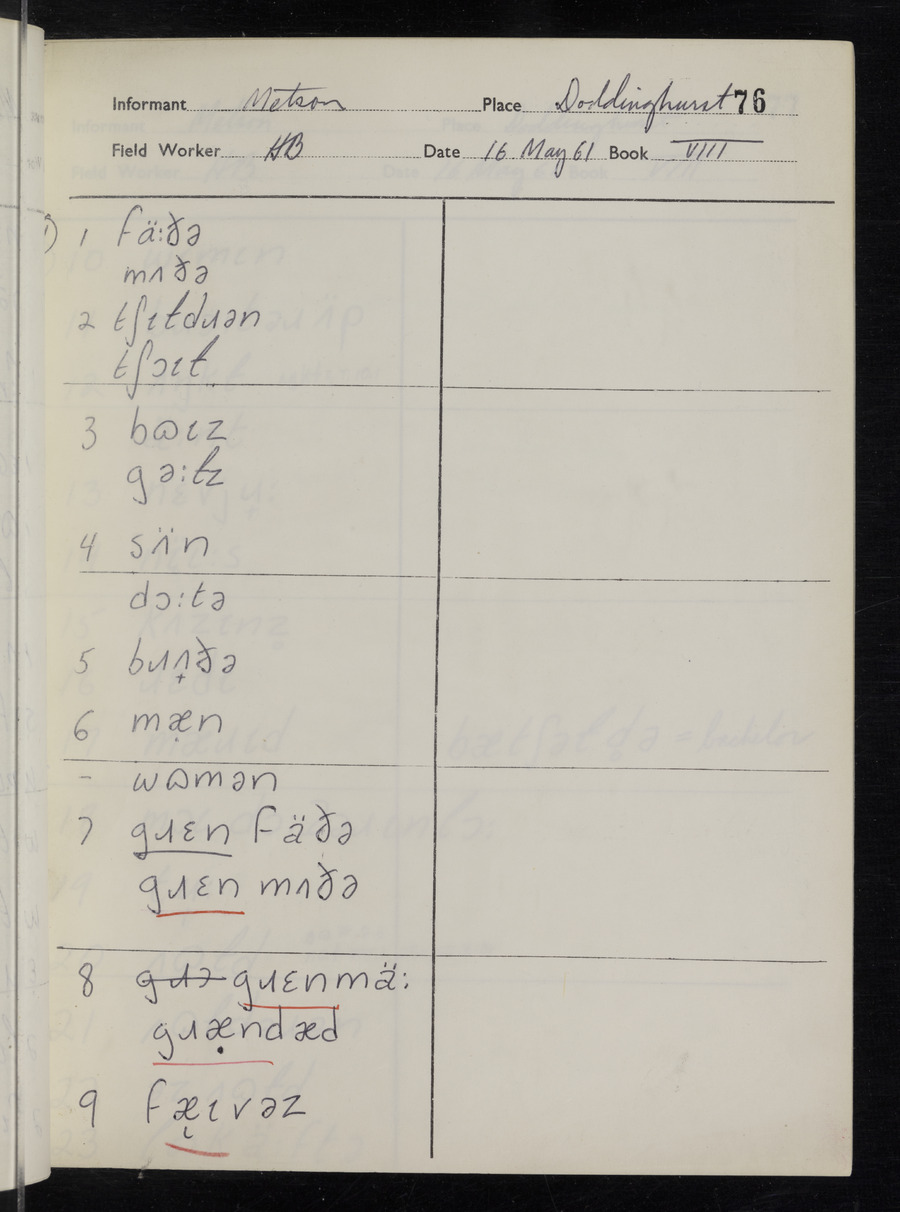 Informant Metson Place Doddinghurst 76
Field Worker HB Date 16 May 61 Book VIII
1) 1 fä:ðə
mʌðə
2 tʃɩldɹən
tʃɔɩɫ
3 bɷɩz
gə:ɫz
4 sʌ̈n
dɔ:tə
5 bɹʌ̟ðə
6 mæ̣n
– wɷmən
7 gɹɛn fäðə
gɹɛn mʌðə
8 gɹə gɹɛnmä:
gɹæ̣ndæd
9 fæ̨ɩvəz